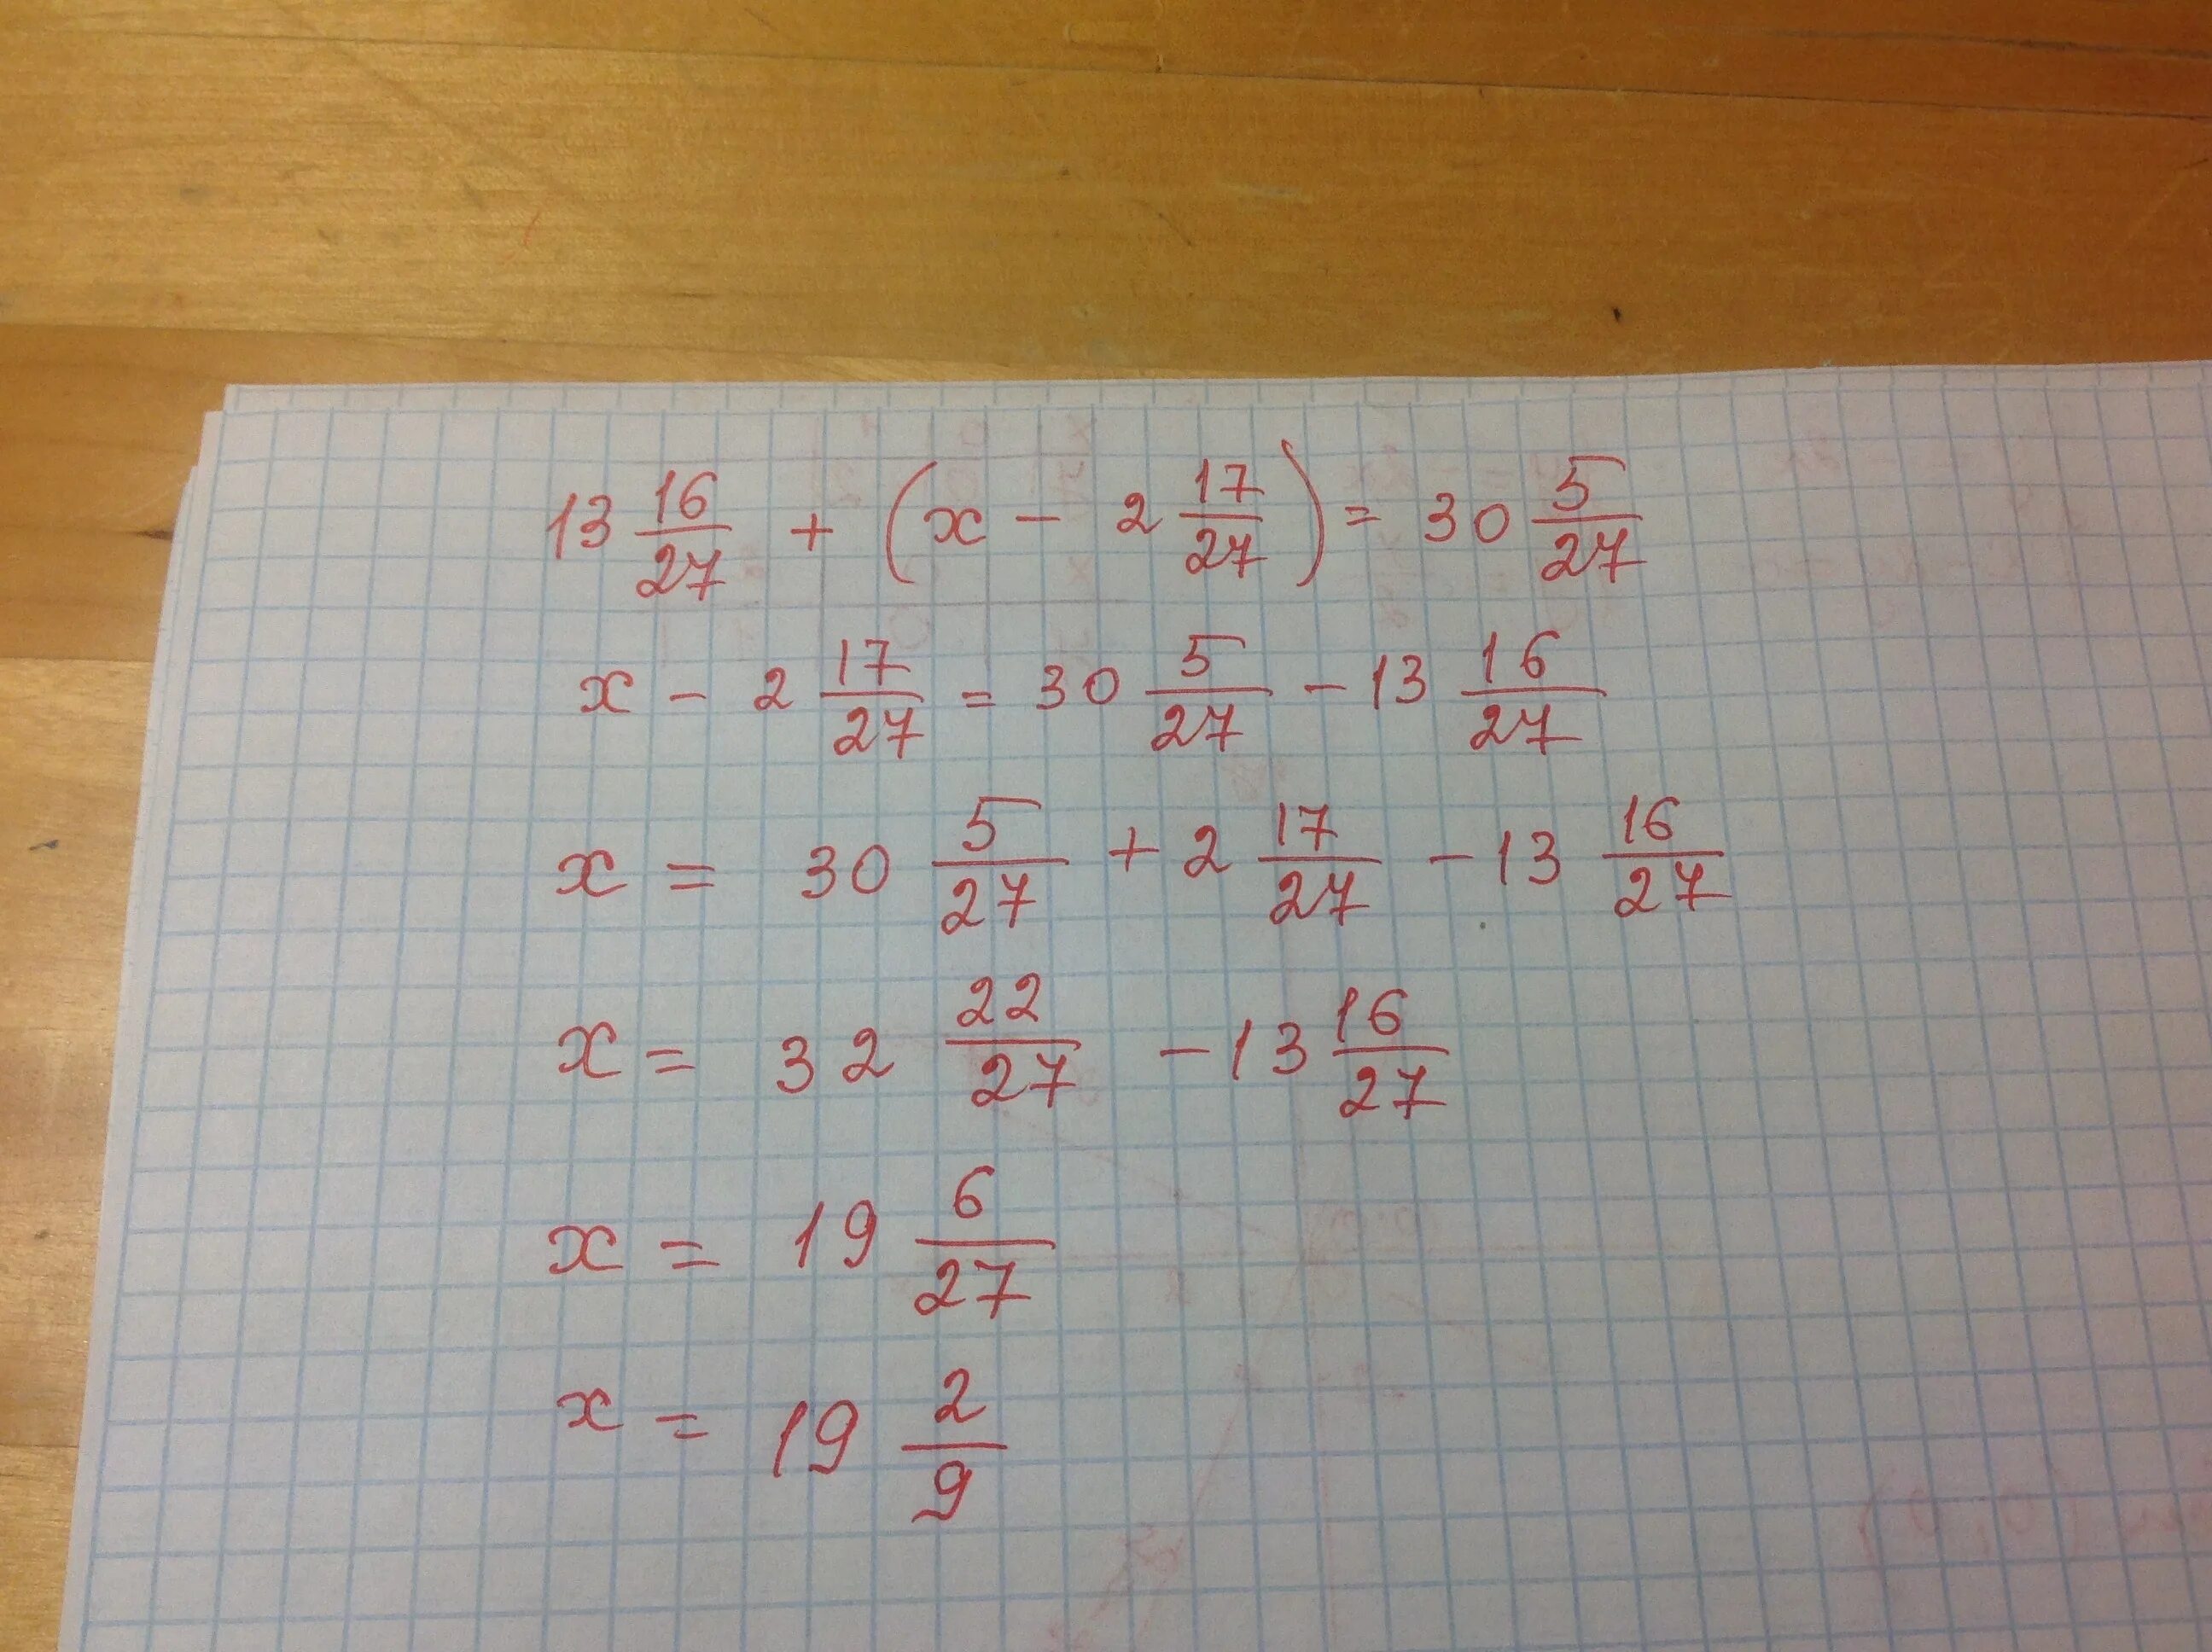 13 16/27 + (x - 2 17/27) = 30 5/27
x - 2 17/27 = 30 5/27 - 13 16/27
x = 30 5/27 + 2 17/27 - 13 16/27
x = 32 22/27 - 13 16/27
x = 19 6/27
x = 19 2/9